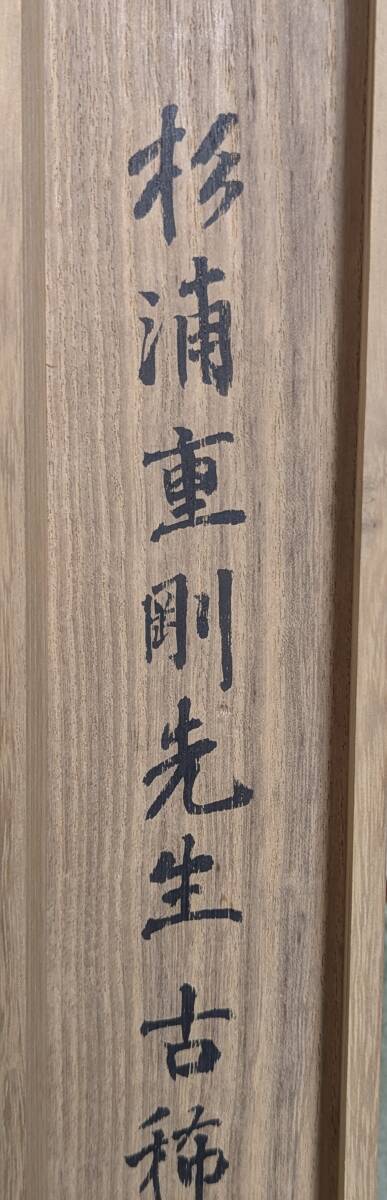 杉浦重剛先生古稀